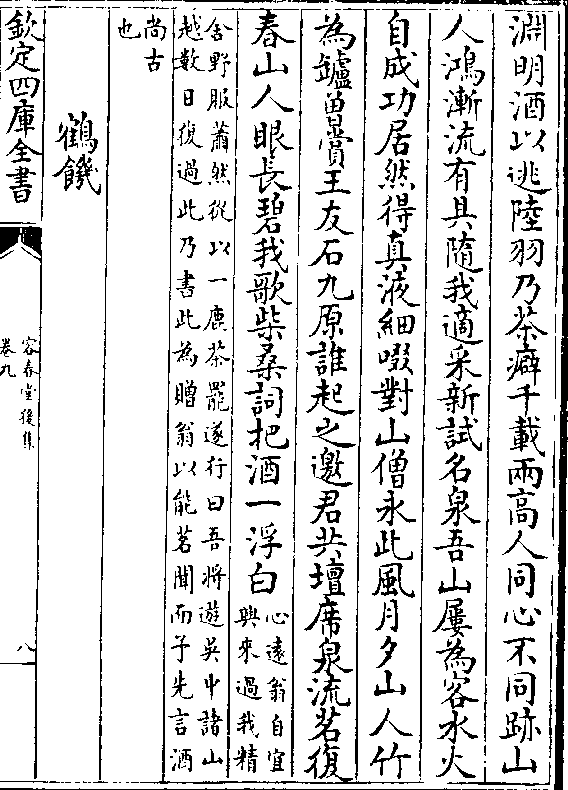 淵明酒以逃陸羽乃茶癖千載兩高人同心不同跡山
人鴻漸流有具隨我適采新試名泉吾山屢為客水火
自成功居然得真液細啜對山僧永此風月夕山人竹
為鑪曽賞王友石九原誰起之邀君共壇席泉流茗復
春山人眼長碧我歌柴桑詞把酒一浮白心遠翁自宜
興來過我精
舍野服蕭然從以一鹿茶罷遂行曰吾將遊吳中諸山
越數日復過此乃書此為贈翁以能茗聞而予先言酒
尚古
也
鶴饑
欽定四庫全書
容春堂後集
卷九
八